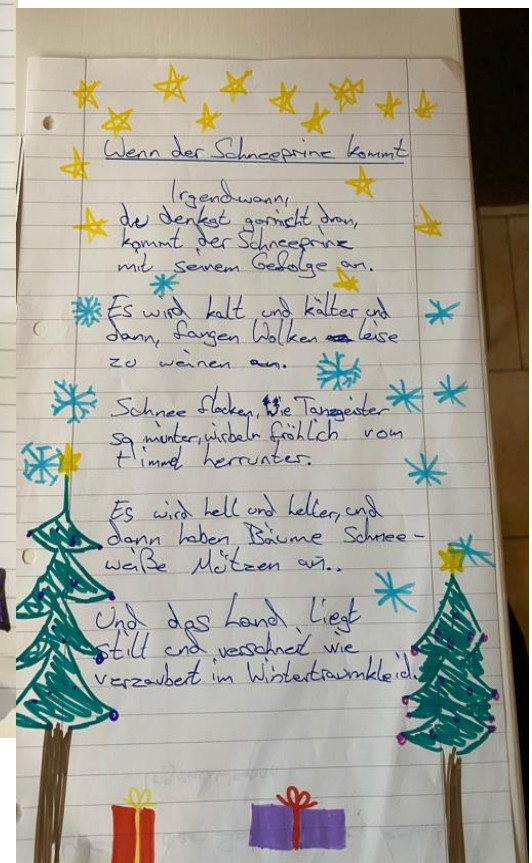 Wenn der Schneeprinz kommt
Irgendwann,
du denkst garnicht dran,
kommt der Schneeprinz
mit seinem Gefolge an.
Es wird kalt und kälter und
dann, fangen Wolken leise
zu weinen an.
Schnee flocken, wie Tanzgeister
so munter, wirbeln fröhlich vom
Himmel herrunter.
Es wird hell und heller, und
dann haben Bäume Schnee-
weiße Mützen an..
Und das Land liegt
still und verschneit wie
verzaubert im Wintertraumkleid.